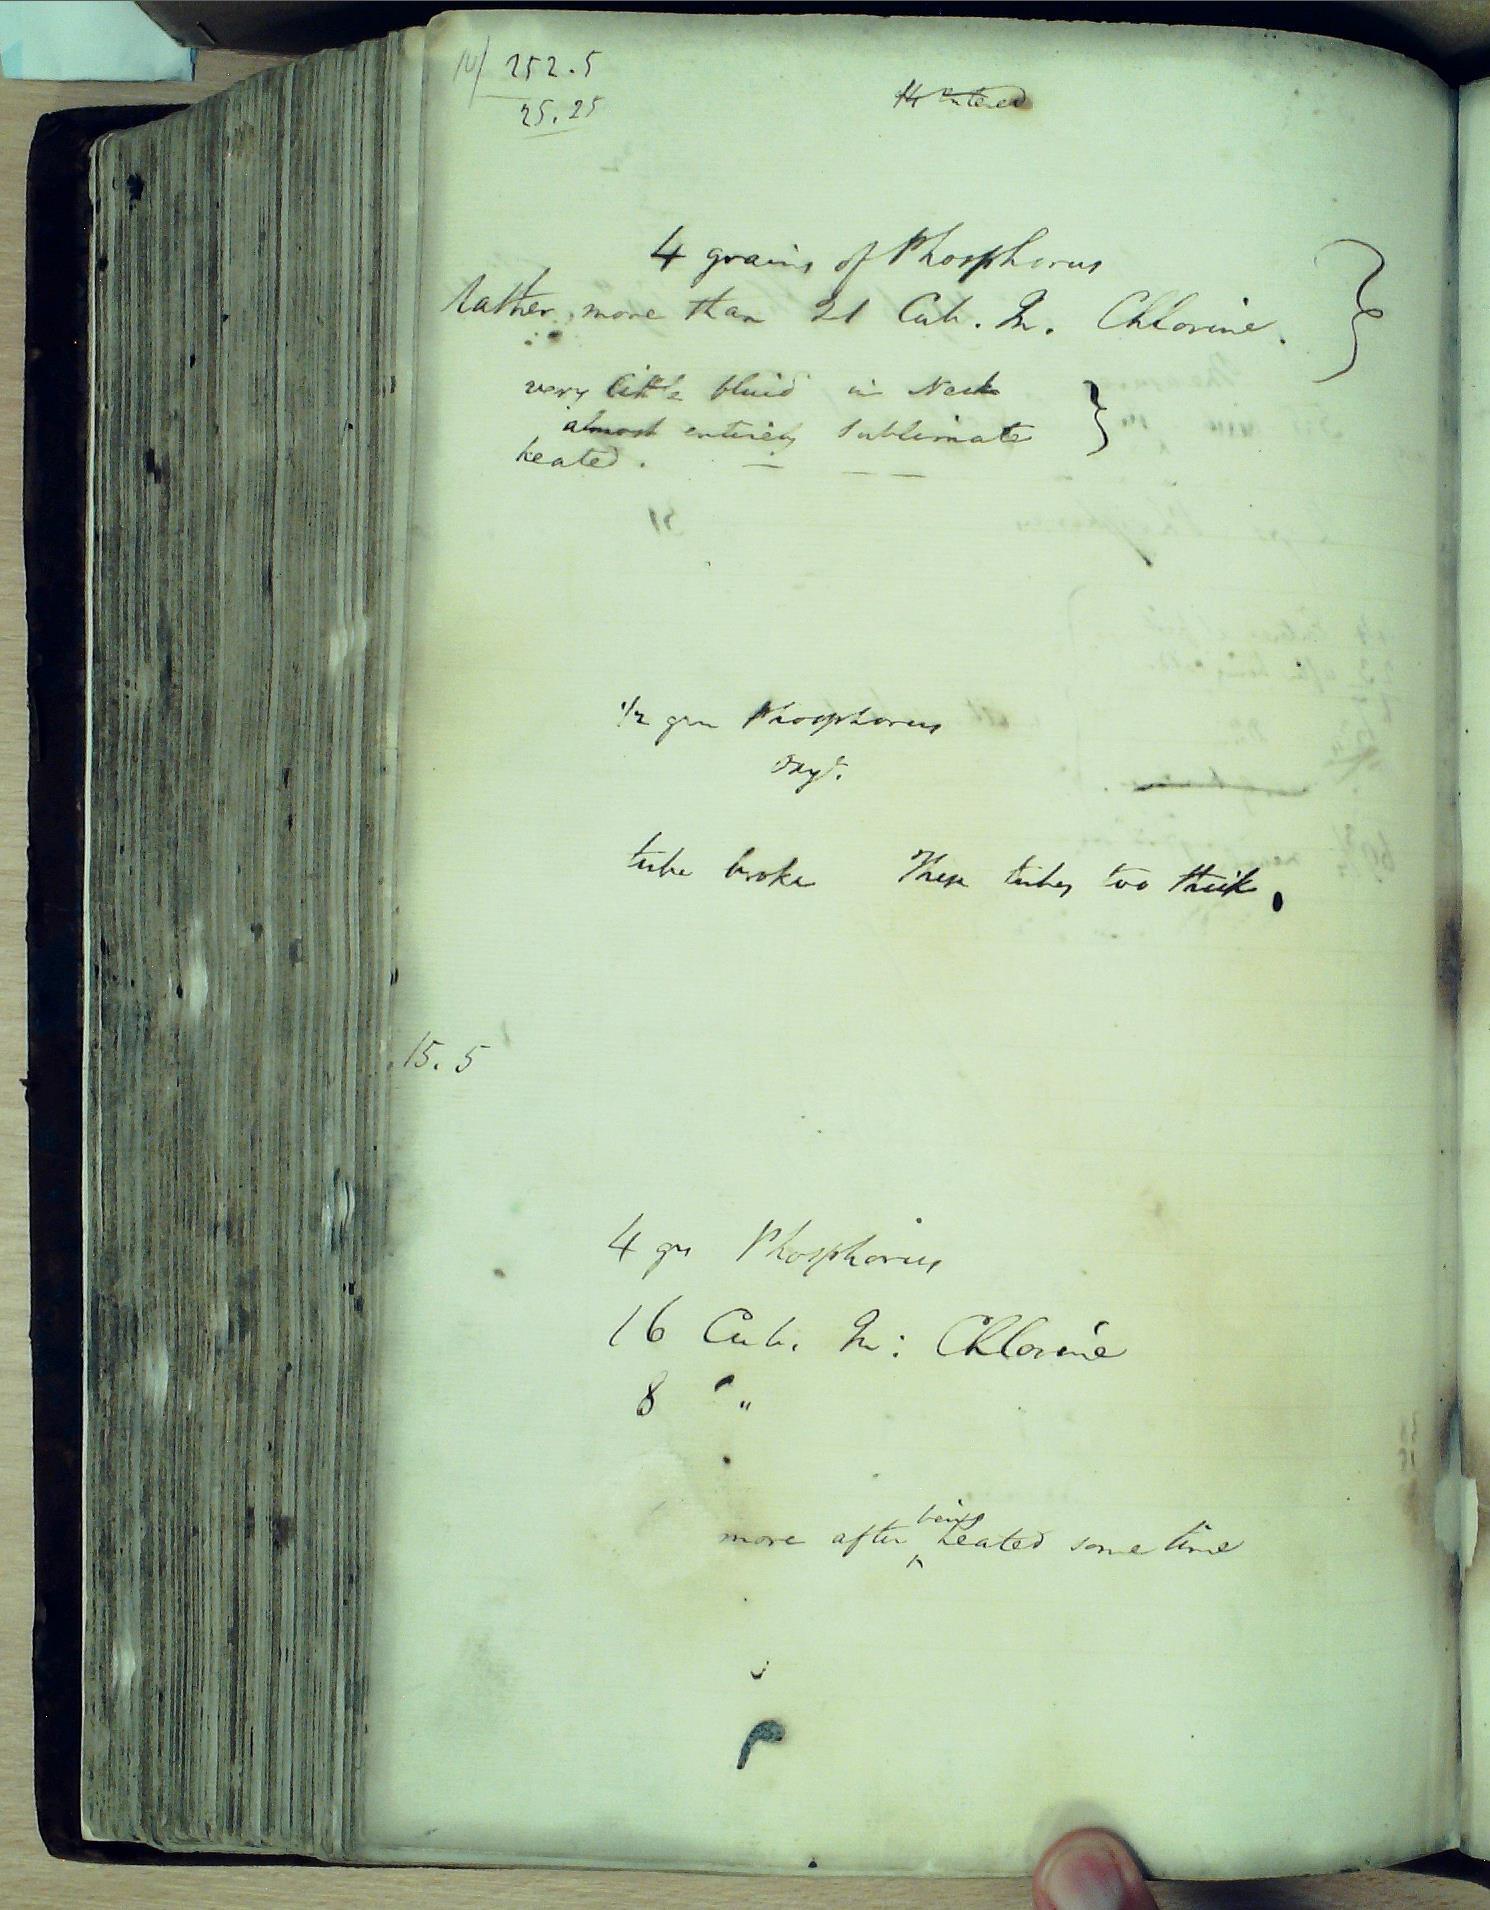 10/ 252.5
25.25
entered
4 grains of Phosphorus
rather more than 21 Cub. In. Chlorine.
very little fluid in Neck
almost entirely sublimate
heated.
1/2 grn Phosphorus
Oxyg.
tube broke These tubes too thick
15.5
4 grs Phosphorus
16 Cub. In: Chlorine
8 " "
being
more after ^ heated some time